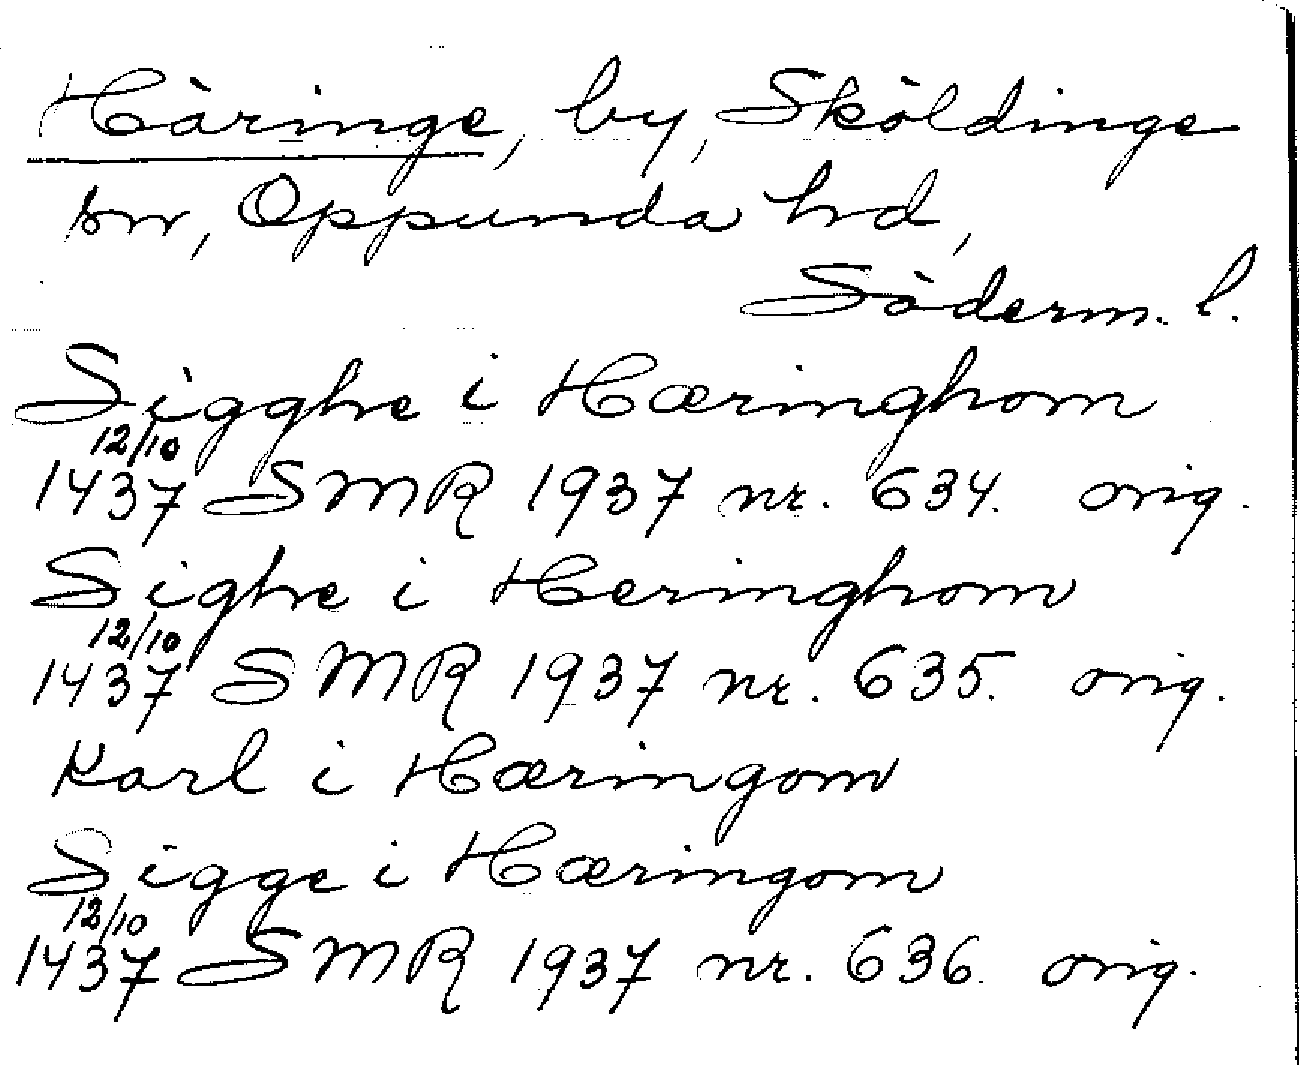 Häringe, by, Sköldinge
sn, Oppunda hd,
Söderm. l.
Sigghe i Hæringhom
12/10
1437 SMR 1937 nr. 634. orig.
Sighe i Heringhom
12/10
1437 SMR 1937 nr. 635. orig.
Karl i Hæringom
Sigge i Hæringom
12/10
1437 SMR 1937 nr. 636. orig.